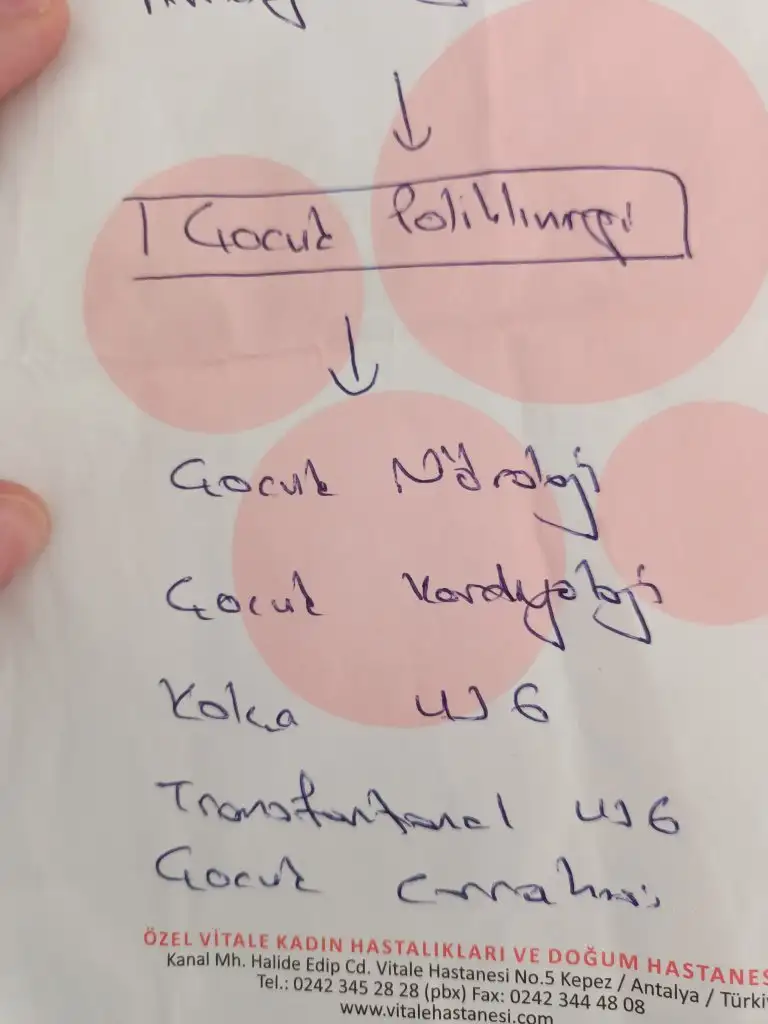 Çocuk Polikliniği
Çocuk Nöroloji
Çocuk Kardiyoloji
Kalça USG
Transfontanel USG
Çocuk Cerrahisi
ÖZEL VİTALE KADIN HASTALIKLARI VE DOĞUM HASTANES
Kanal Mh. Halide Edip Cd. Vitale Hastanesi No.5 Kepez / Antalya / Türki
Tel.: 0242 345 28 28 (pbx) Fax: 0242 344 48 08
www.vitalehastanesi.com